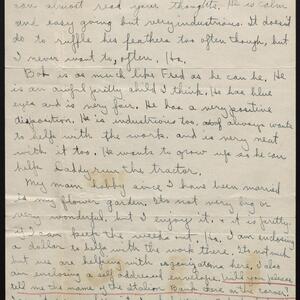 can almost read your thoughts. He is calm
and easy going but very industrious. It doesn't
do to ruffle his feathers too often though, but
I never want to, often. Ha.
Bob is as much like Fred as he can be. He
is an awful pretty child I think. He has blue
eyes and is very fair. He has a very positive
disposition. He is industrious too. And always wants
to help with the work. and is very neat
with it too. He wants to grow up so he can
help Daddy run the tractor.
My main hobby since I have been married
is my flower garden. Its not very big or
very wonderful, but I enjoy it. & it is pretty
if I can keep the weeds out. Ha. I am enclosing
a dollar to help with the work there. Its not much
but we are helping with organizations here. I also
am enclosing a self addressed envelope. Will you please
tell me the name of the Station Bank store on the corner